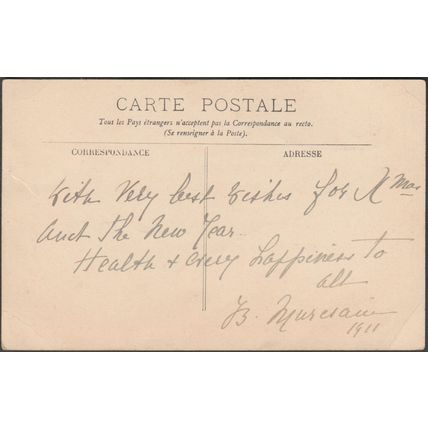 CARTE POSTALE
Tous les Pays étrangers n'acceptent pas la Correspondance au recto.
(Se renseigner à la Poste).
CORRESPONDANCE
ADRESSE
With Very best wishes for Xmas
and The New Year.
Health & every happiness to
all
1911